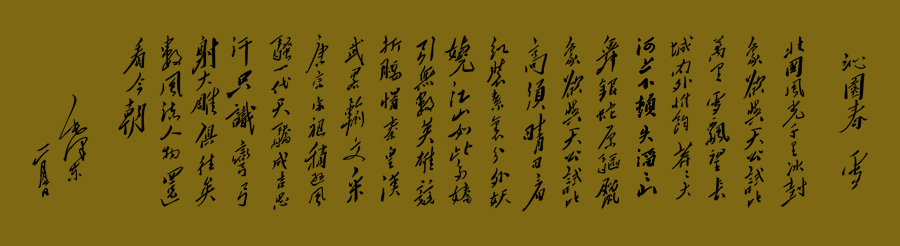 沁園春 雪
北國風光千里冰封
象欲與天公試比
萬里雪飄望長
城內外惟餘莽莽大
河上下頓失滔滔山
舞銀蛇原驅臘
象欲與天公試比
高須晴日看
紅裝素裹分外妖
嬈江山如此多嬌
引無數英雄競
折腰惜秦皇漢
武畧輸文采
唐宗宋祖稍遜風
騷一代天驕成吉思
汗只識彎弓
射大雕俱往矣
數風流人物還
看今朝
毛澤東